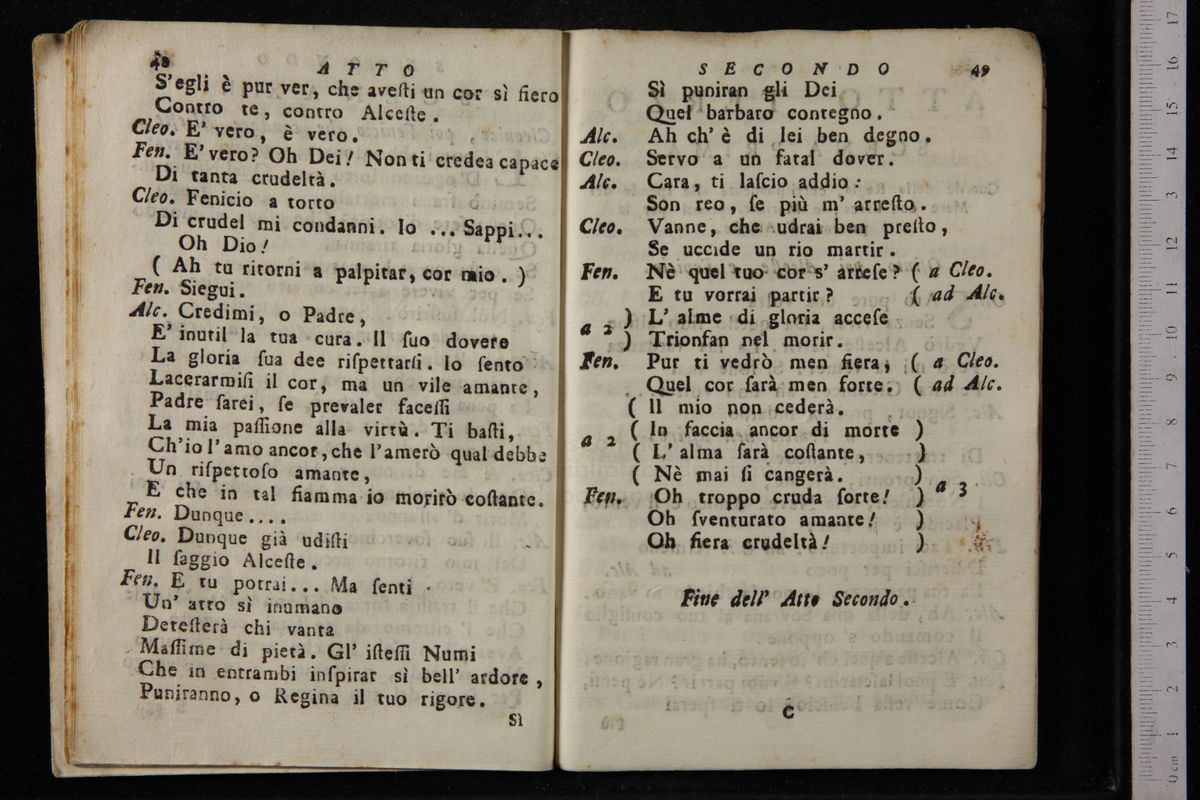 48
ATTO
S'egli è pur ver, che aveſti un cor sì fiero
Contro te, contro Alceſte.
Cleo. E' vero, è vero.
Fen. E' vero? Oh Dei! Non ti credea capace
Di tanta crudeltà.
Cleo. Fenicio a torto
Di crudel mi condanni. Io ... Sappi...
Oh Dio!
( Ah tu ritorni a palpitar, cor mio. )
Fen. Siegui.
Alc. Credimi, o Padre,
E' inutil la tua cura. Il ſuo dovere
La gloria ſua dee riſpettarſi. Io ſento
Lacerarmiſi il cor, ma un vile amante,
Padre ſarei, ſe prevaler faceſſi
La mia paſſione alla virtù. Ti baſti,
Ch'io l'amo ancor, che l'amerò qual debbe
Un riſpettoſo amante,
E che in tal fiamma io morirò coſtante.
Fen. Dunque....
Cleo. Dunque già udiſti
Il ſaggio Alceſte.
Fen. E tu potrai... Ma ſenti
Un' atto sì inumano
Deteſterà chi vanta
Maſſime di pietà. Gl' iſteſſi Numi
Che in entrambi inſpirar sì bell' ardore,
Puniranno, o Regina il tuo rigore.
Sì
SECONDO
49
Sì puniran gli Dei
Quel barbaro contegno.
Alc. Ah ch' è di lei ben degno.
Cleo. Servo a un fatal dover.
Alc. Cara, ti laſcio addio:
Son reo, ſe più m' arreſto.
Cleo. Vanne, che udrai ben preſto,
Se uccide un rio martir.
Fen. Nè quel tuo cor s' arreſe? ( a Cleo.
E tu vorrai partir? ( ad Alc.
a 2 ) L' alme di gloria acceſe
) Trionfan nel morir.
Fen. Pur ti vedrò men fiera, ( a Cleo.
Quel cor ſarà men forte. ( ad Alc.
( Il mio non cederà.
a 2 ( In faccia ancor di morte )
( L' alma ſarà coſtante, )
( Nè mai ſi cangerà. ) a 3
Fen. Oh troppo cruda ſorte! )
Oh ſventurato amante! )
Oh fiera crudeltà! )
Fine dell' Atto Secondo.
C
0 cm 1 2 3 4 5 6 7 8 9 10 11 12 13 14 15 16 17